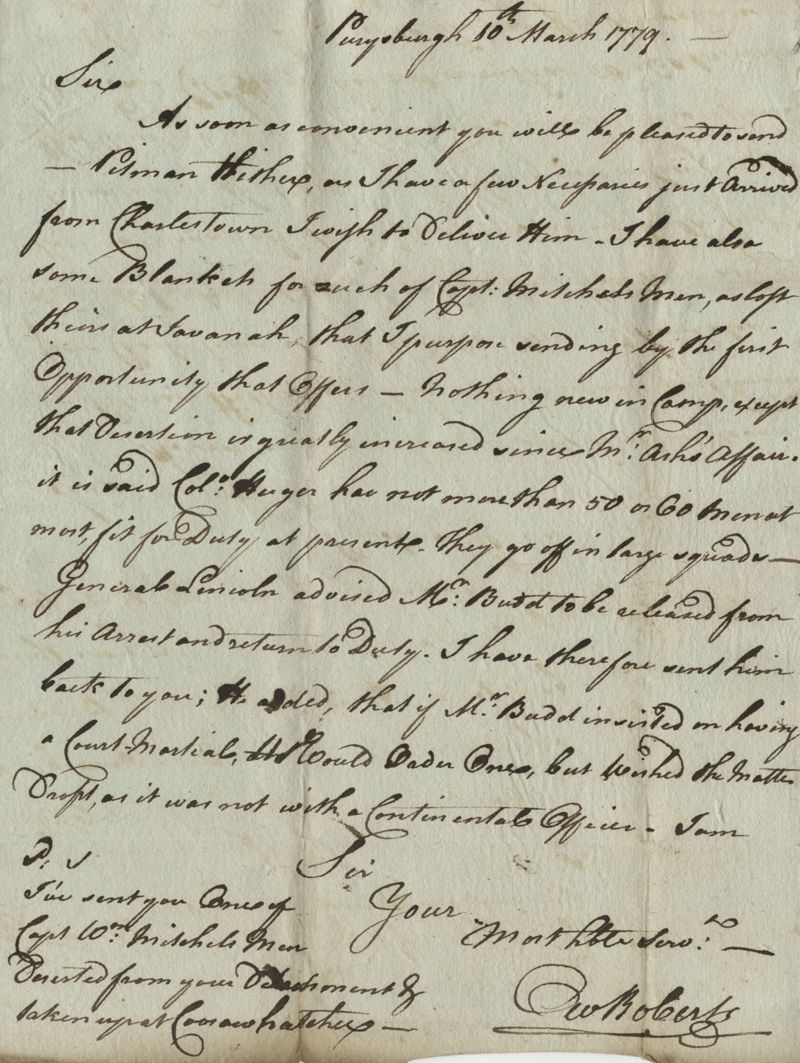 Purysburgh 10th March 1779. —
Sir
As soon as convenient you will be pleased to send
— Pitman Hither, as I have a few Necessaries just Arrived
from Charlestown I wish to Deliver Him – I have also
some Blankets for such of Capt: Mitchels Men, as lost
theirs at Savanah, that I purpose sending by the first
Opportunity that Offers — Nothing new in Camp, except
that Desertion is greatly increased since Mr: Ash's Affair.
it is said Colo: Huger has not more than 50 or 60 Men at
most, fit for Duty at present. They go off in large squads —
General Lincoln advised Mr: Budd to be released from
his Arrest and return to Duty. I have therefore sent him
back to you; He added, that if Mr. Budd insisted on having
a Court Martial, He Would Order One, but Wished the Matter
Dropt, as it was not with a Continental Officer – I am
Sir
Your
Most Hble Servt: —
Ow Roberts
P: S
I've sent you One of
Capt Wm: Mitchels Men
Deserted from your Detachment &
taken up at Coosawhatchee —